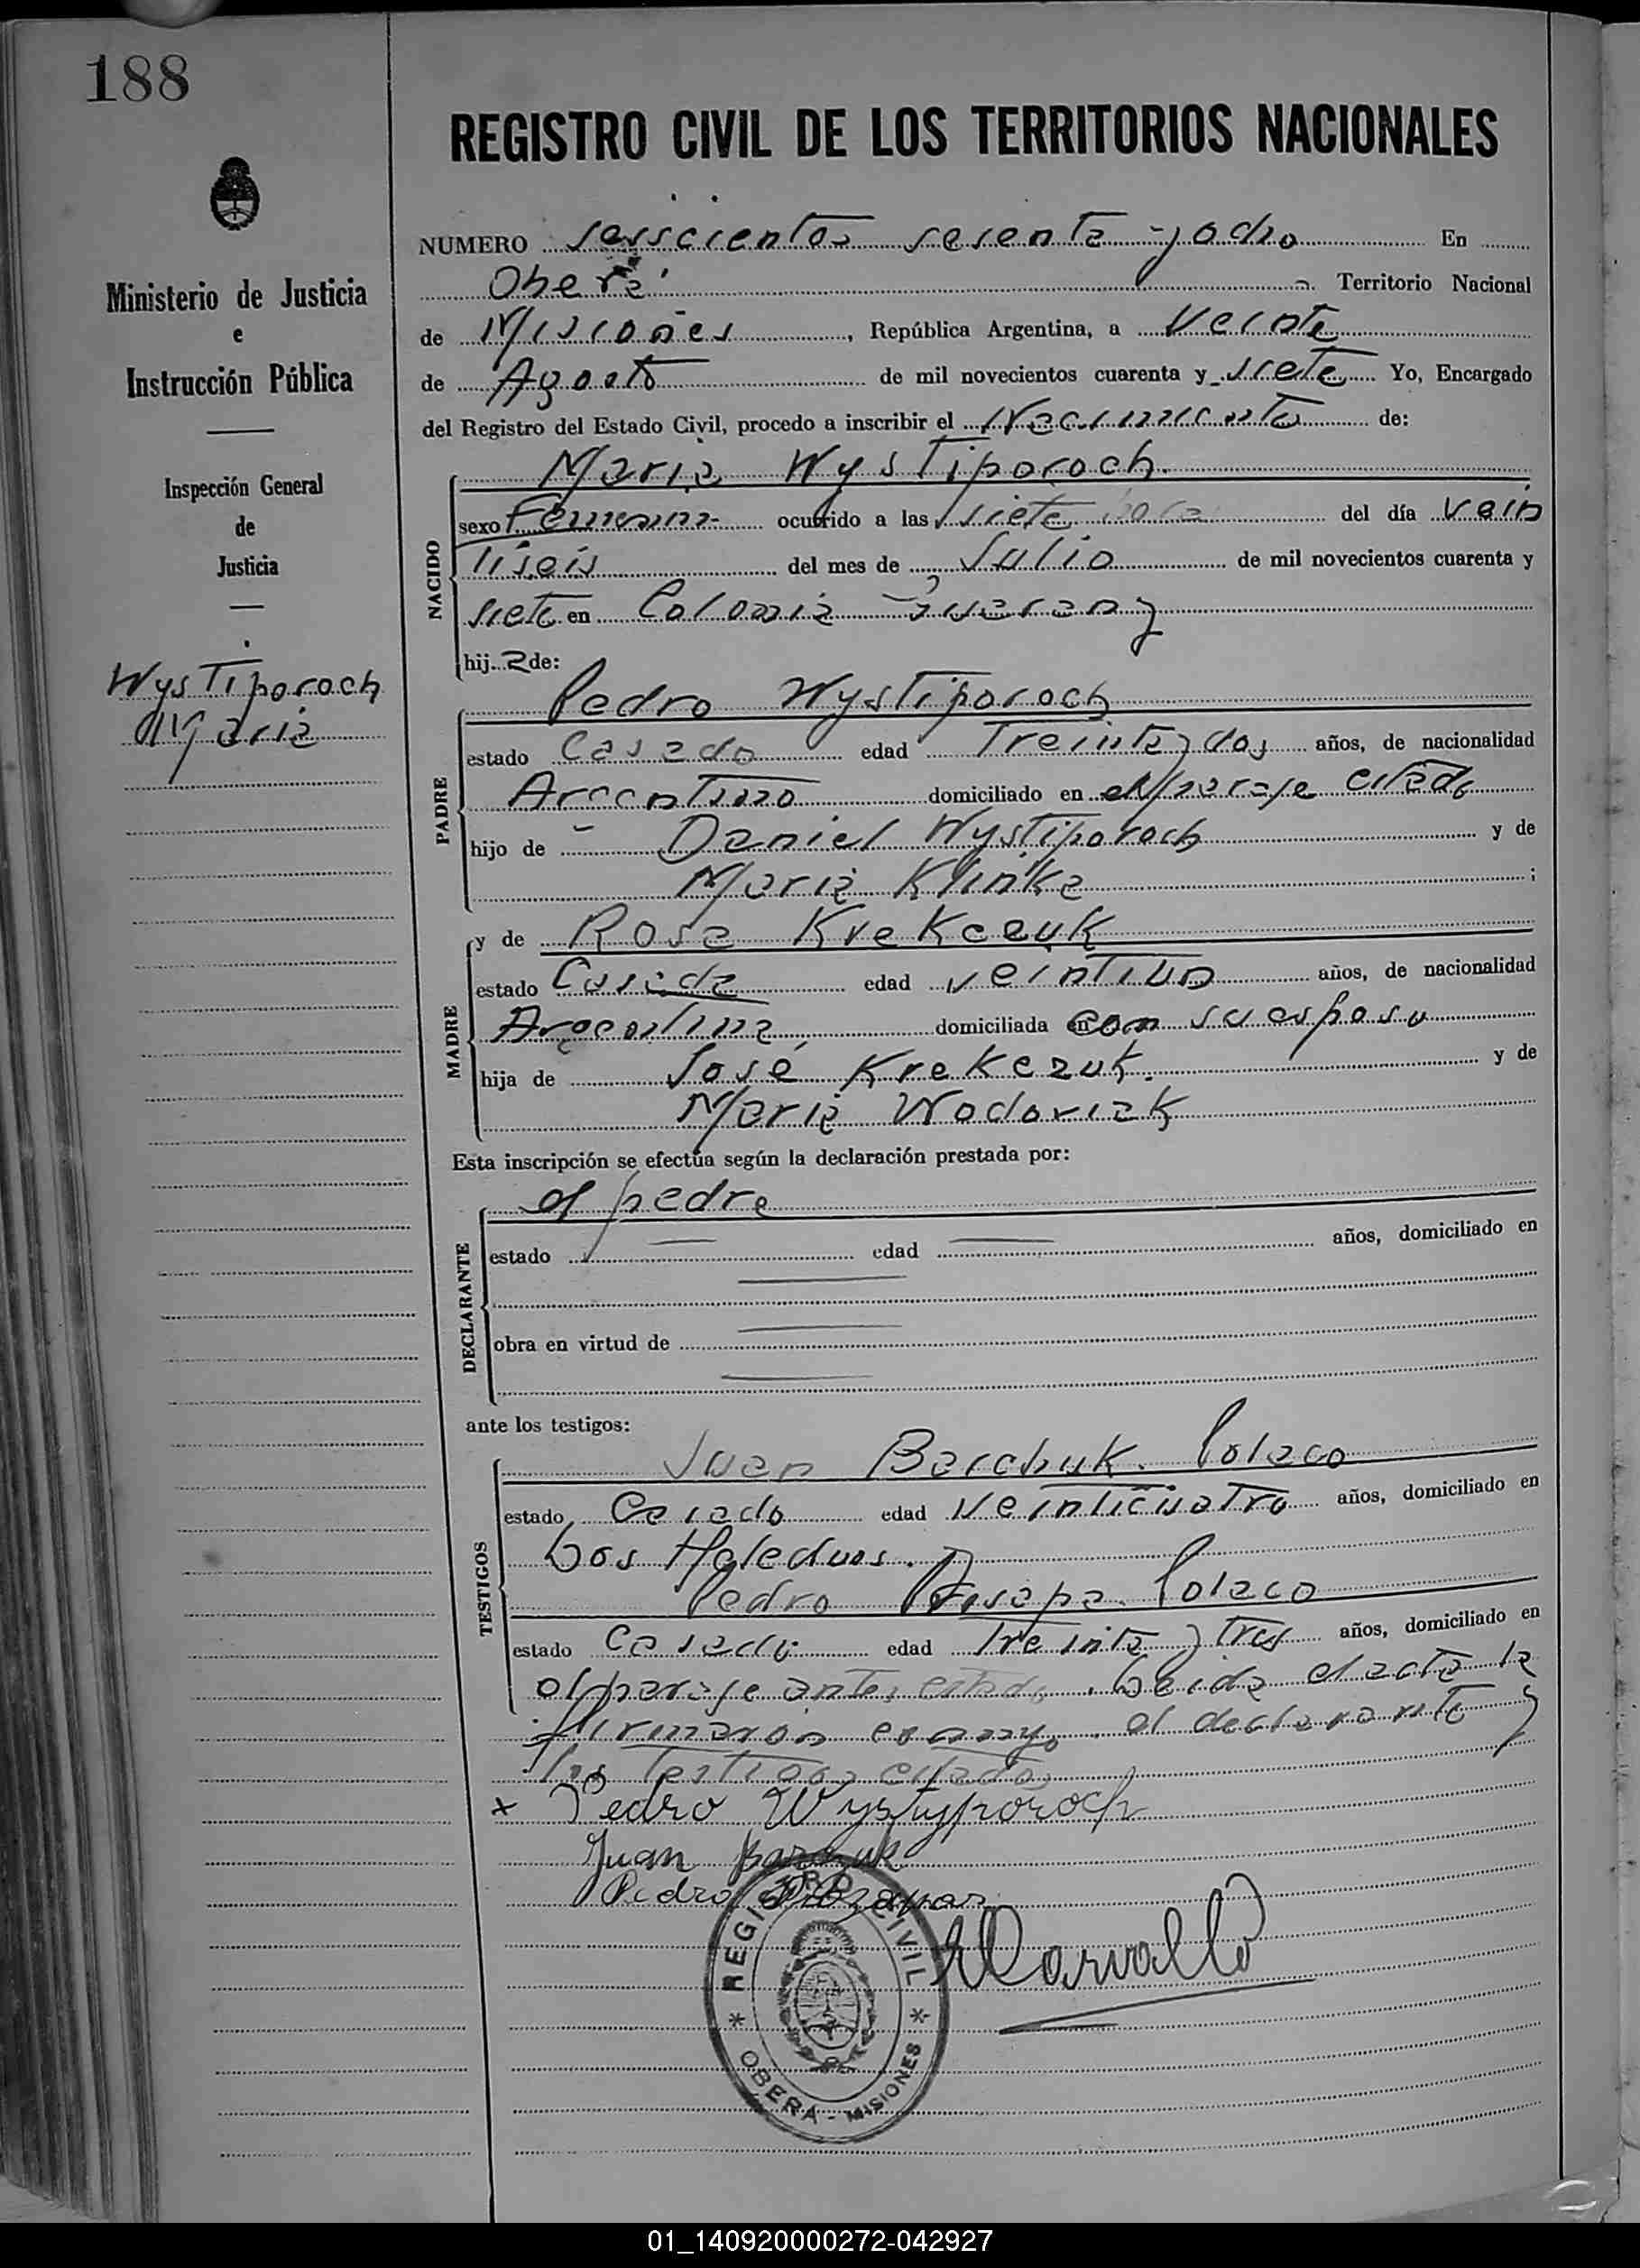 188
REGISTRO CIVIL DE LOS TERRITORIOS NACIONALES
Ministerio de Justicia
e
Instrucción Pública
Inspección General
de
Justicia
Wystiporoch
Maria
NUMERO seiscientos sesenta y ocho En
Oberá Territorio Nacional
de Misiones, República Argentina, a Veinte
de Agosto de mil novecientos cuarenta y siete Yo, Encargado
del Registro del Estado Civil, procedo a inscribir el Nacimiento de:
Maria Wystiporoch.
NACIDO
sexo Femenino ocurrido a las siete horas del día vein
tiseis del mes de Julio de mil novecientos cuarenta y
siete en Colonia Guarany
hij a de:
Pedro Wystiporoch
PADRE
estado Casado edad Treinta y dos años, de nacionalidad
Argentino domiciliado en el paraje citado
hijo de Daniel Wystiporoch y de
Maria Klinka ;
MADRE
y de Rosa Krekczuk
estado Casada edad veintiun años, de nacionalidad
Argentina domiciliada en con su esposo
hija de José Krekczuk. y de
Maria Wodoviak
Esta inscripción se efectúa según la declaración prestada por:
DECLARANTE
el padre
estado edad años, domiciliado en
obra en virtud de
ante los testigos:
TESTIGOS
Juan Barchuk. Polaco
estado Casado edad Veinticuatro años, domiciliado en
Los Heleduos.
Pedro Polaco
estado Casado edad Treinta y tres años, domiciliado en
el paraje ante citado. Leida el acta la
firmaron conmigo el declarante y
los testigos citados
x Pedro Wystyporoch
Juan Barczuk
Pedro
Carvallo
REGISTRO CIVIL
* OBERÁ - MISIONES *
01_140920000272-042927